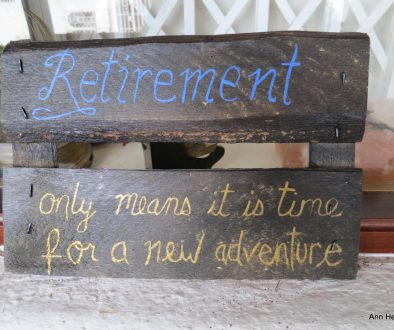 Retirement
only means it is time
for a new adventure
Ann